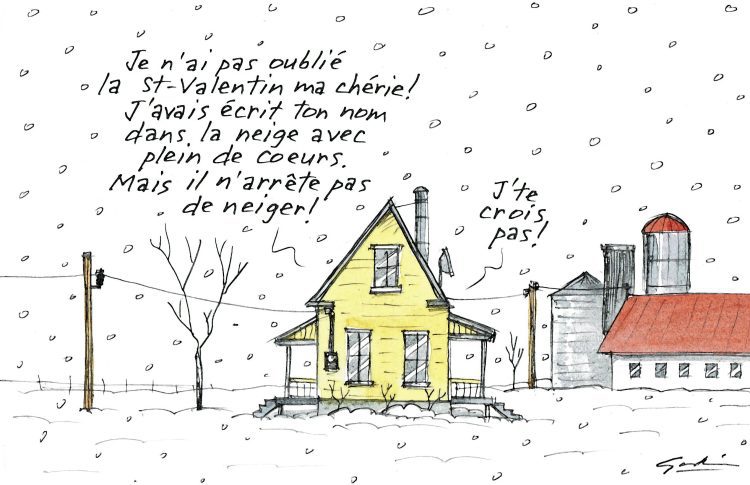 Je n'ai pas oublié
la St-Valentin ma chérie!
J'avais écrit ton nom
dans la neige avec
plein de coeurs.
Mais il n'arrête pas
de neiger!
J'te
crois
pas!